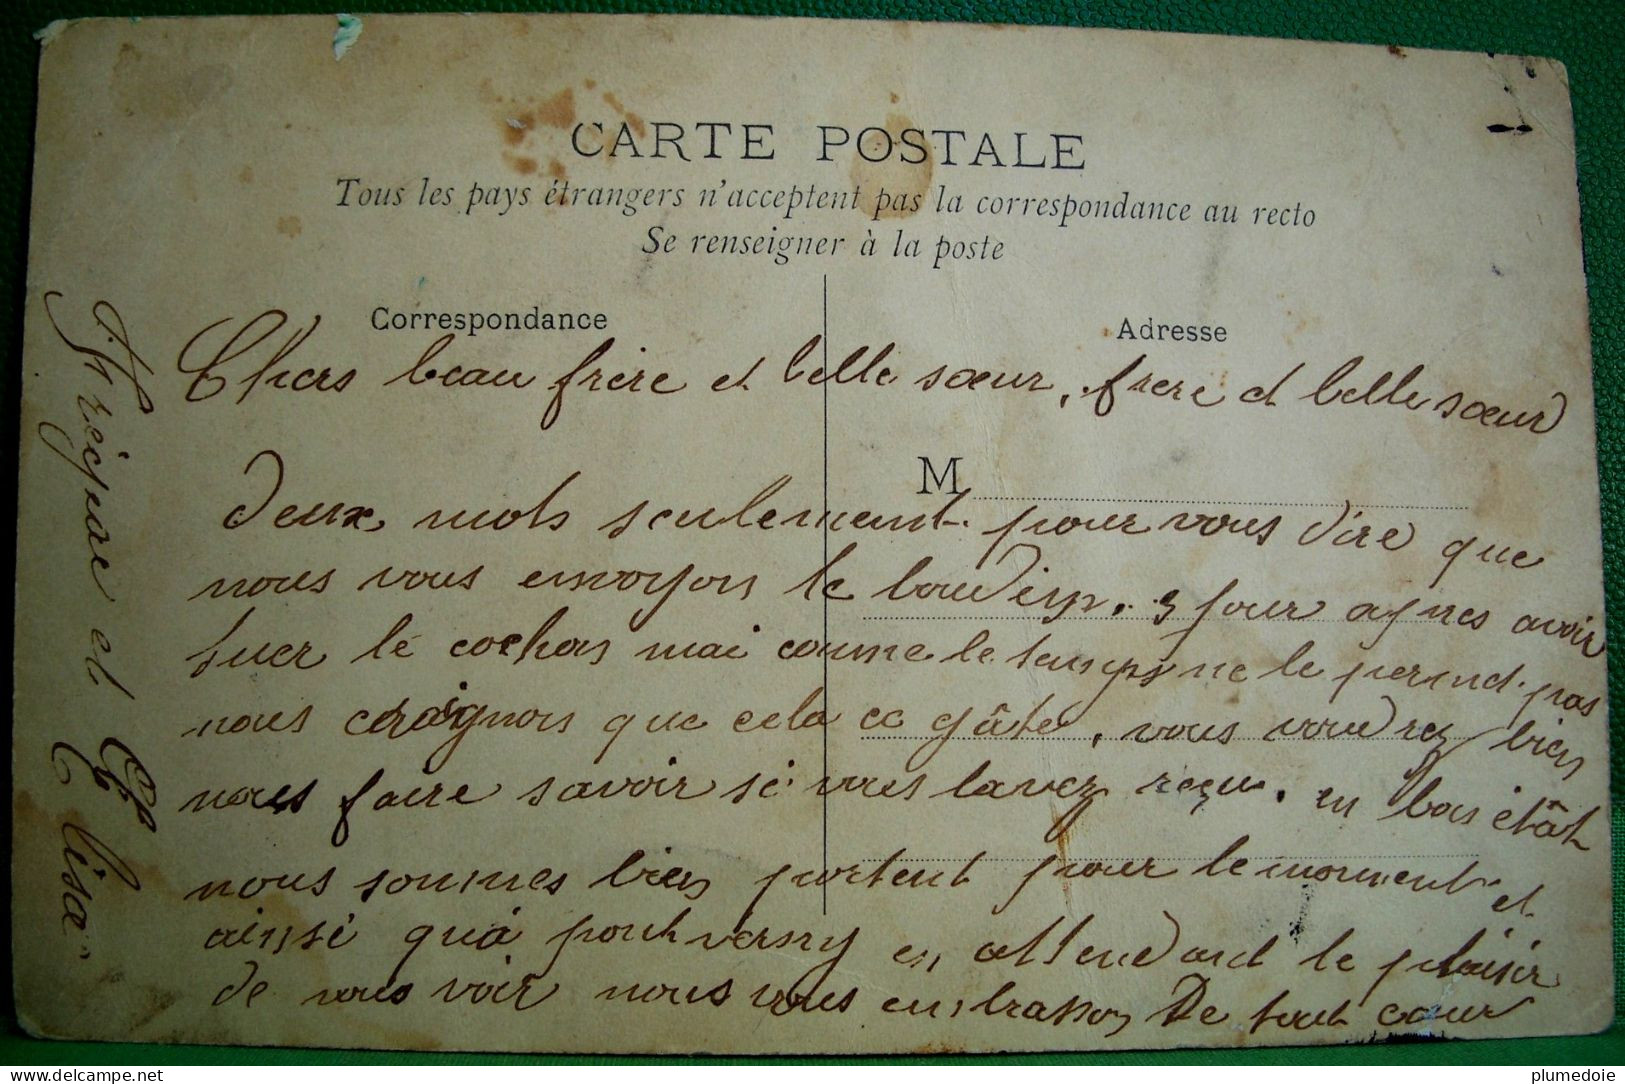 CARTE POSTALE
Tous les pays étrangers n'acceptent pas la correspondance au recto
Se renseigner à la poste
Correspondance
Adresse
Chers beau frère et belle sœur, frere et belle sœur
M
deux mots seulement pour vous dire que
nous vous envoyons le boudin, 3 jour apres avoir
tuer le cochon mai comme le temps ne le permet pas
nous craignons que cela ce gâte, vous voudrez bien
nous faire savoir si vous lavez reçu. en bon étât
nous sommes bien portent pour le moment et
ainsi qu'à pont versny en attendant le plaisir
de vous voir nous vous embrasson De tout cœur
et Elisa
plumedoie